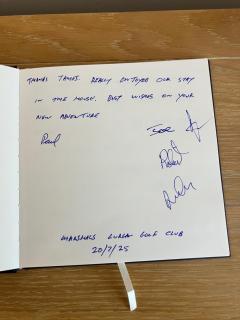 THANKS JAMES. REALLY ENJOYED OUR STAY
IN THE HOUSE. BEST WISHES ON YOUR
NEW ADVENTURE
Paul
LURGAN GOLF CLUB
20/7/25